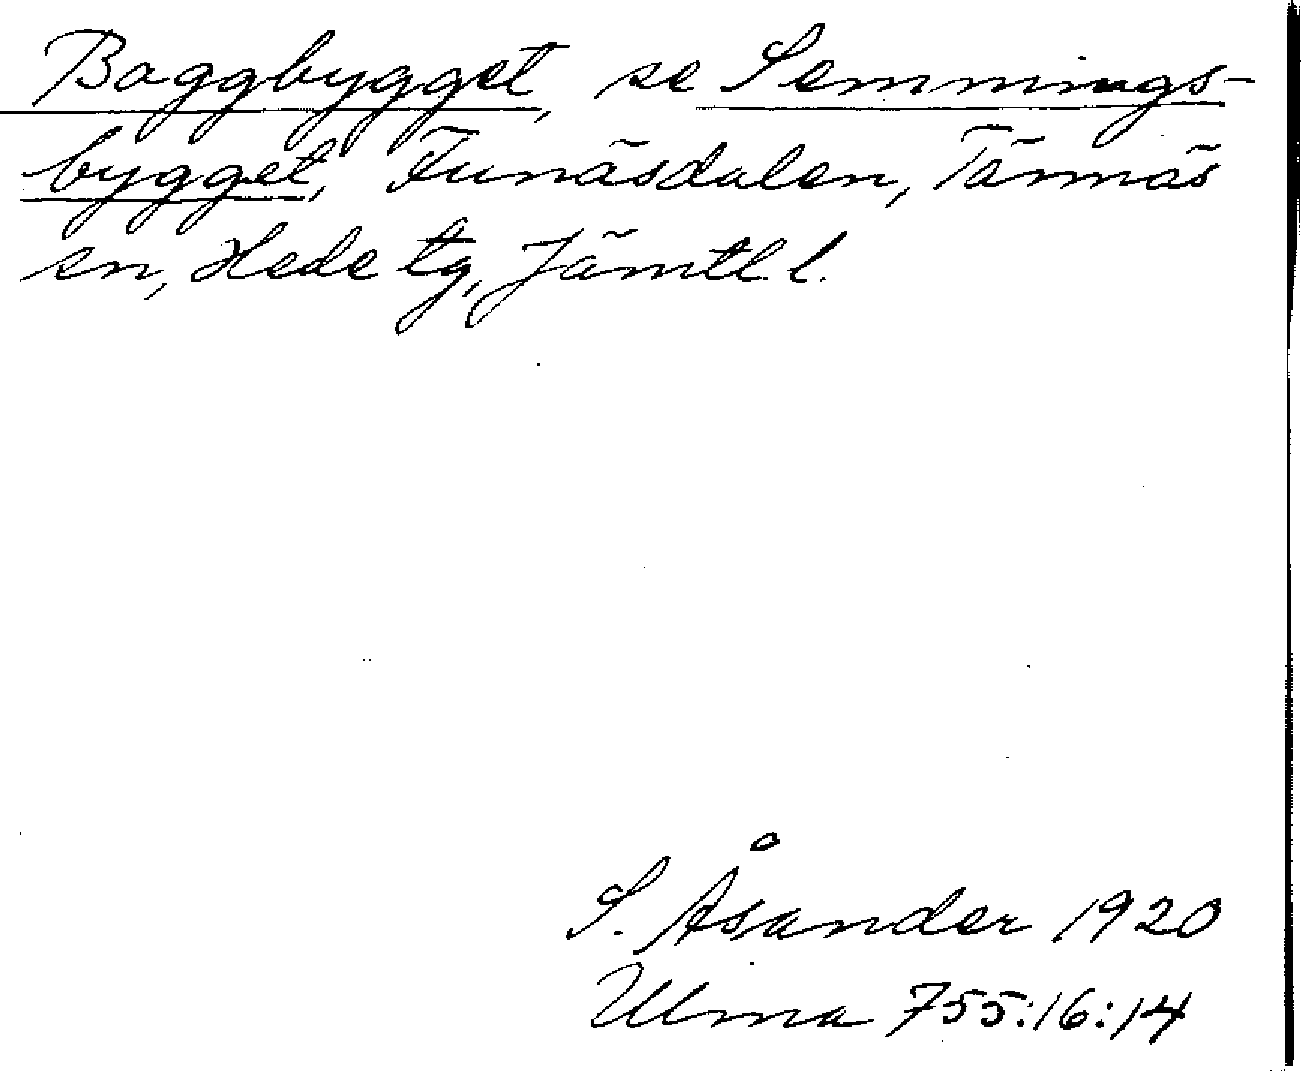 Baggbygget, se Semmings-
bygget, Funäsdalen, Tännäs
sn, Hede tg, Jämtl. l.
S. Åsander 1920
Ulma 755:16:14